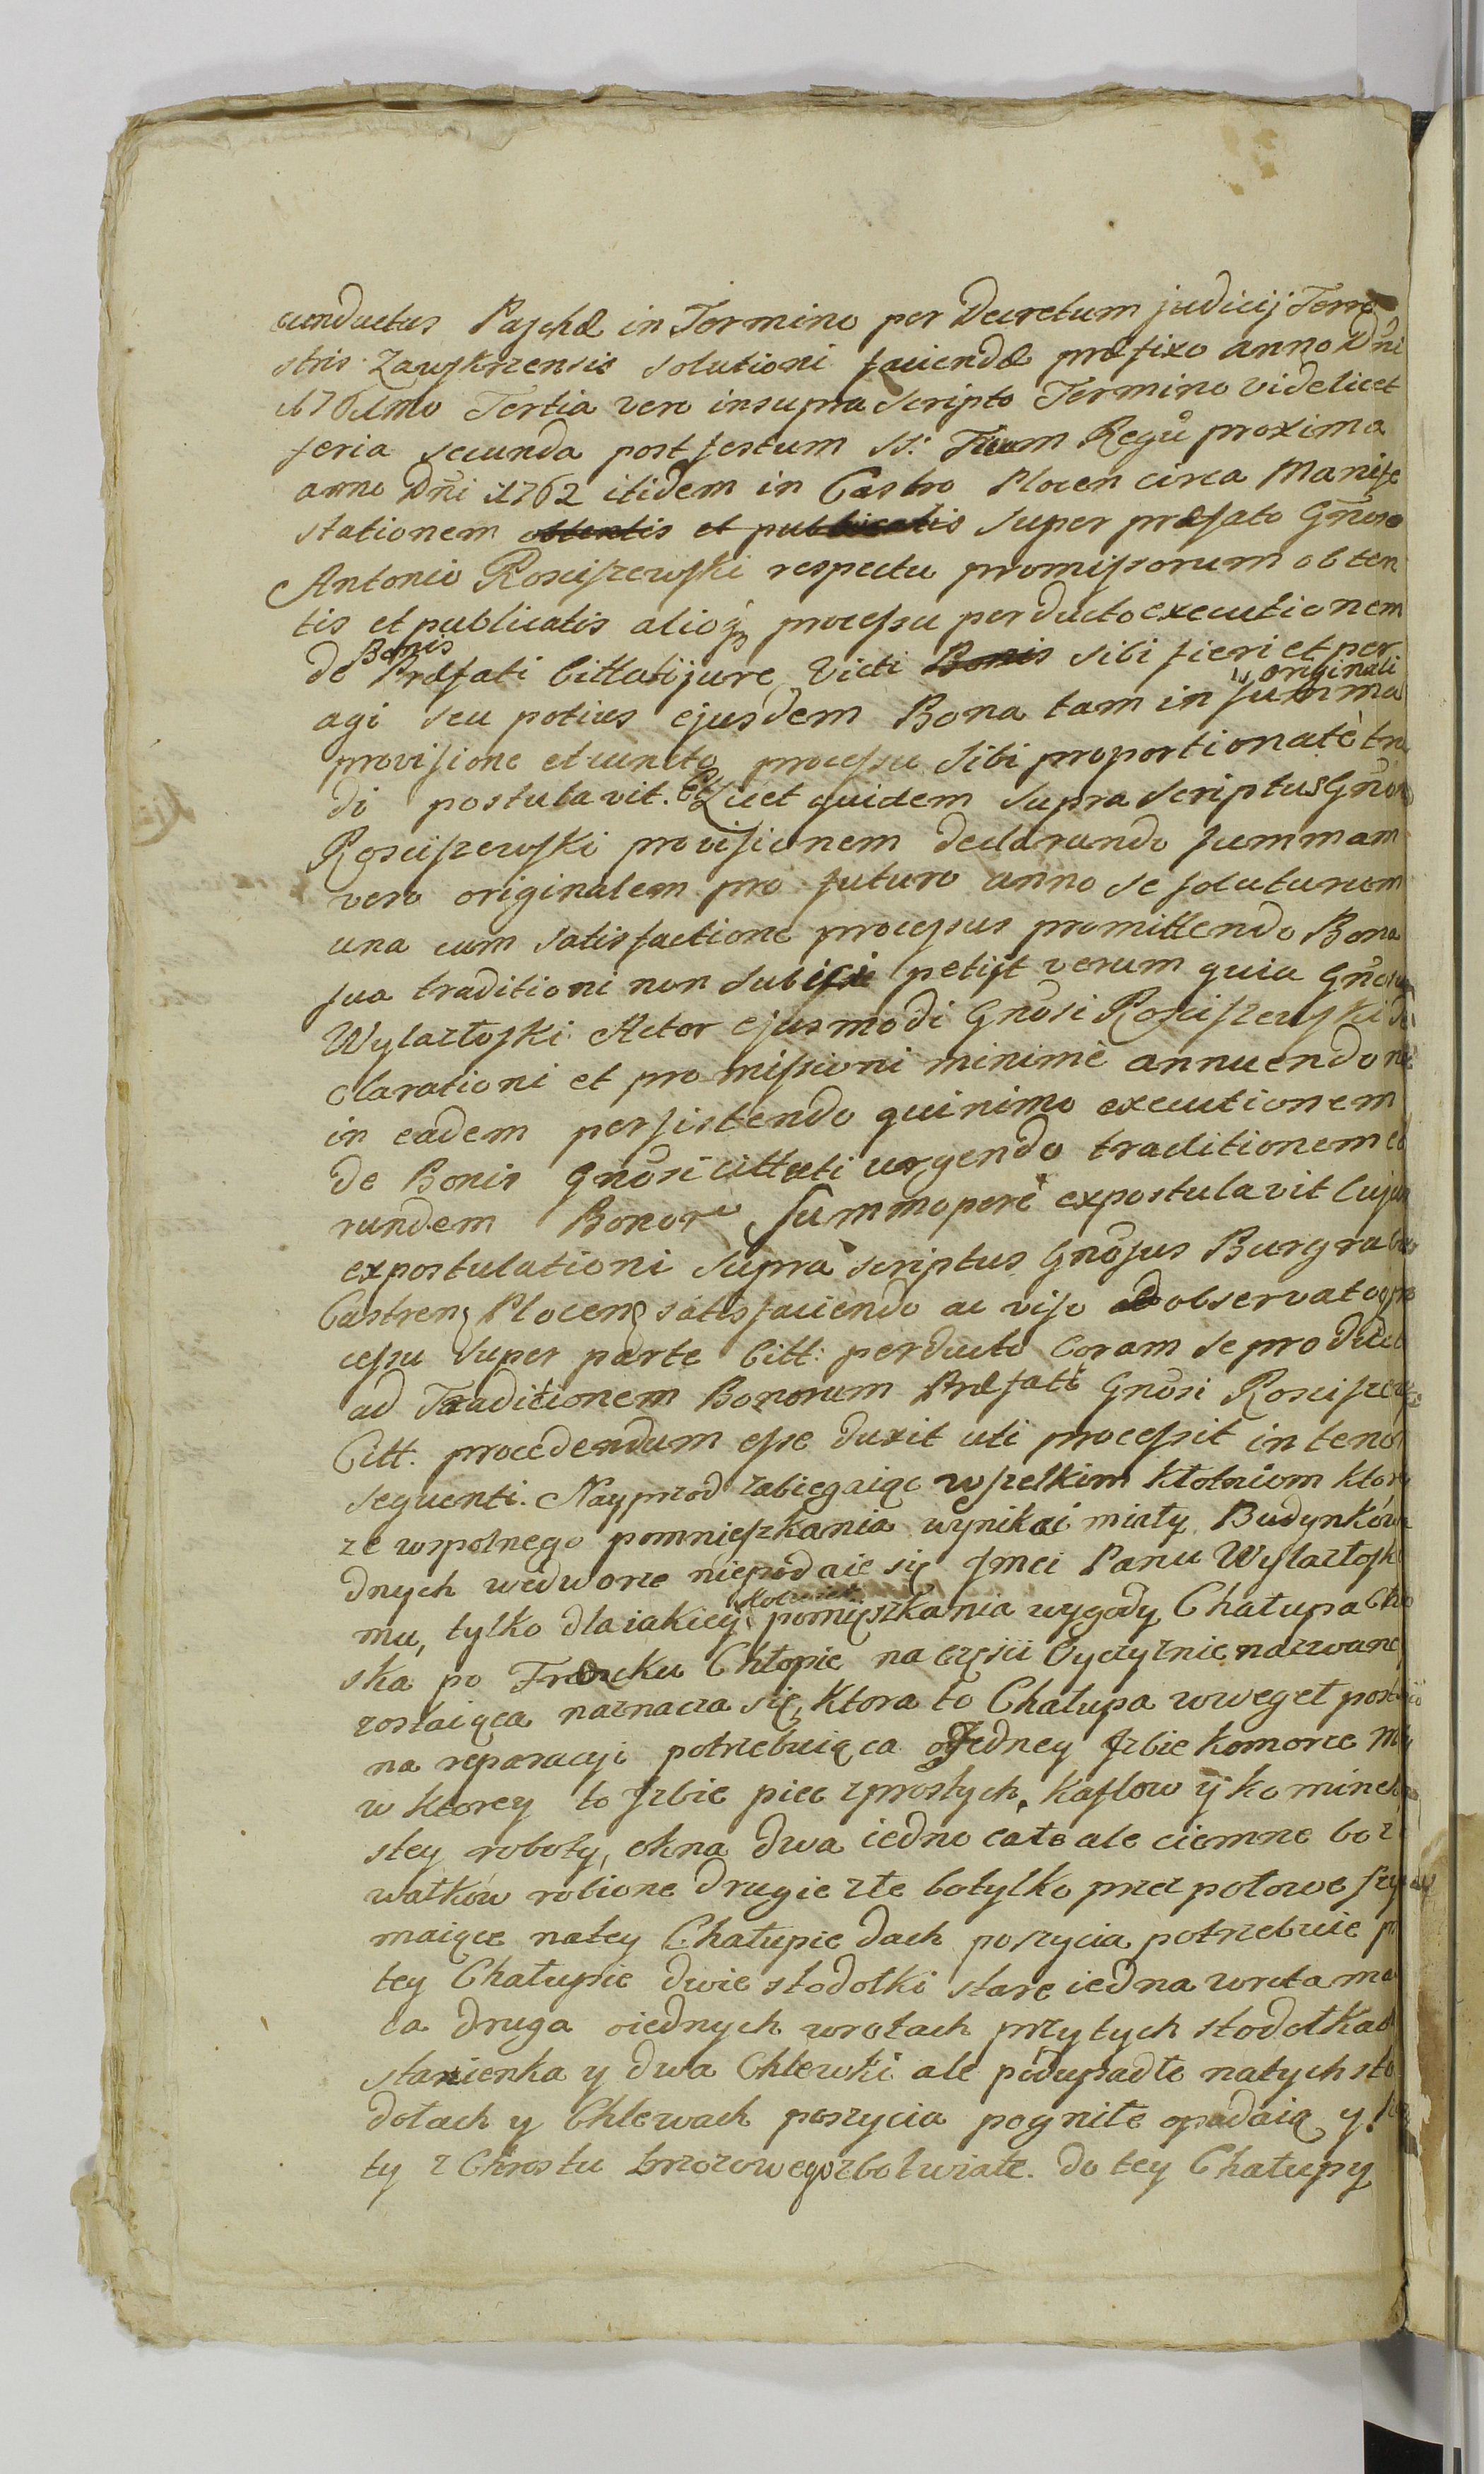 cunductus Paschæ in Termino per Decretum judicij Terre
stris Zawskrzensis solutioni faciendæ præfixo anno Dni
1761mo Tertia vero in supra scripto Termino videlicet
feria secunda post festum SS: Trium Regũ proxima
anno Dni 1762 itidem in Castro Plocen circa Manife
stationem obtentis et publicatis super præfato Gnoso
Antonio Rosciszewski respectu promissorum obten
tis et publicatis alioq processu perducto executionem
Bonis
de Præfati Cittati jure victi Bonis sibi fieri et per
originali
agi seu potius ejusdem Bona tam in summa
provisione et cuncto processu sibi proportionatè tra
di postulavit. Et Licet quidem supra scriptus Gnosus
Rosciszewski provisionem declarando summam
vero originalem pro futuro anno se soluturum
una cum satisfactione processus promittendo Bona
sua traditioni non subici petijt verum quia Gnosus
Wylazłoski Actor ejusmodi Gnosi Rosciszewski de
clarationi et promissioni minimè annuendo
in eadem persistendo quinimo executionem
de Bonis Gnosi cittati urgendo traditionem eo
rundem Bonor summoperè expostulavit Cujus
expostulationi supra scriptus Gnosus Burgrabius
Castren Plocen satisfaciendo ac viso observato pro
cessu super parte Citt: perducto coram se producto
ad Traditionem Bonorum Præfati Gnosi Rosciszewski
Citt. procedendum esse duxit uti processit in tenore
sequenti. Nayprzod zabiegaiąc wszelkim kłotniom ktore
ze wspolnego pomnieszkania wynikai miały Budynków
dnych wedworze niepodaie się Jmci Panu Wylazłoske
kolwiek
mu, tylko dla iakiey pomięszkania wygody Chałupa Chło
ska po Francku Chłopie na częsci Cyczyznie nazwaney
zostaiąca naznacza się, ktora to Chałupa w weget
na reparacyi potrzebuiąca o Jedney Jzbie komorze
w ktorey to Jzbie piec zprostych kaflow y kominek
stey roboty, okna dwa iedno całe ale ciemne bo z
wałków robione drugie złe bo tylko przez połowe szyb
maiące na tey Chałupie dach poszycia potrzebuie
tey Chałupie dwie stodołki stare iedna wrota ma
ca druga oiednych wrotach przytych stodołkach
stanienka y dwa Chlewki ale podupadłe natych sto
dołach y Chlewach poszycia pogniłe opadaią y
ty z Chrostu brzozowego zbotwiałe. do tey Chałupy